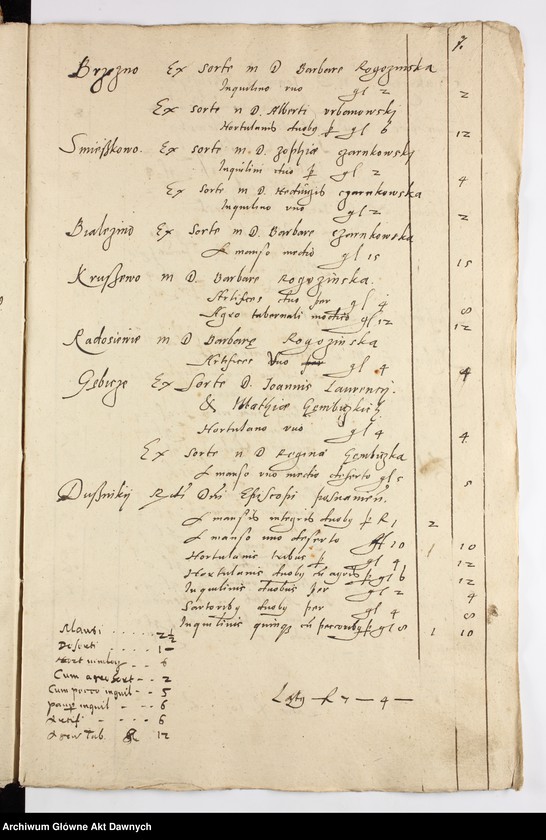 7.
Brzezno Ex Sorte m D Barbare Rogozinska
Inquilino vno gl 2 2
Ex sorte n D. Alberti vrbanowskj
Hortulanis duoby gl 6 12
Smieszkowo. Ex sorte m D. Zophiæ Czarnkowskj
Inquilini duo gl 2 4
Ex Sorte m D Hedwigis Czarnkowska
Inquilino vno gl 2 2
Bialezino Ex Sorte m D. Barbare Czarnkowska
A manso medio gl 15 15
Kruszewo m D. Barbare Rogozinska.
Artifices duo per gl 4 8
Agro tabernali modico gl 12 12
Radosiewie m D Barbarę Rogozinska
Artifice vno per gl 4 4
Gębicze Ex Sorte D. Joannis Laurencij.
& Mathiæ Gembiczkich
Hortulano vno gl 4 4
Ex Sorte n D Regina Gembiczka
A manso vno medio deserto gl 5 5
Duszniky Rdi Dni Episcopi posnanien.
A mansis integris duoby R 1 2
A manso uno deserto gl 10 1 10
Hortulanis tribus gl 4 12
Hortulanis duoby cu agris gl 6 12
Inquilinis duobus per gl 2 4
Sartoriby duoby per gl 4 8
Inquilinis quinq cu pecoriby gl 8 1 10
Mansi . . . . . 2½
Deserti . . . . 1 –
Cum agri hort – – 2
Cum pecore inquil – – 5
paup inquil – – 6
Artif – – – 6
Agri Tab. 12
Laty – R 7 – 4 –
Archiwum Główne Akt Dawnych